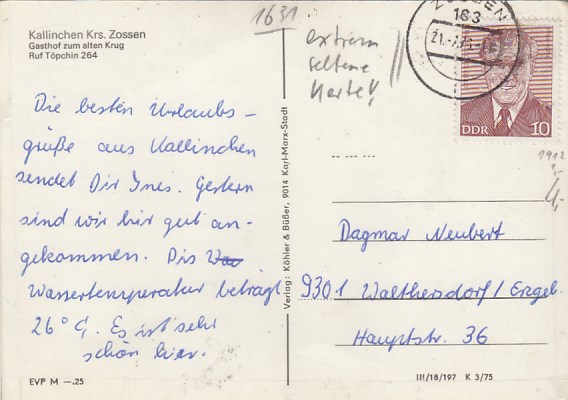 Kallinchen Krs. Zossen
Gasthof zum alten Krug
Ruf Töpchin 264
1631
extrem
seltene
Karte!
ZOSSEN
163
DDR 10
1912
1,-
4,-
Die besten Urlaubs-
grüße aus Kallinchen
sendet Dir Ines. Gestern
sind wir hier gut an-
gekommen. Die
Wassertemperatur beträgt
26° C. Es ist sehr
schön hier.
Verlag: Köhler & Büßer, 9014 Karl-Marx-Stadt
Dagmar Neubert
9301 Walthersdorf/Erzgeb.
Hauptstr. 36
EVP M —.25
III/18/197 K 3/75